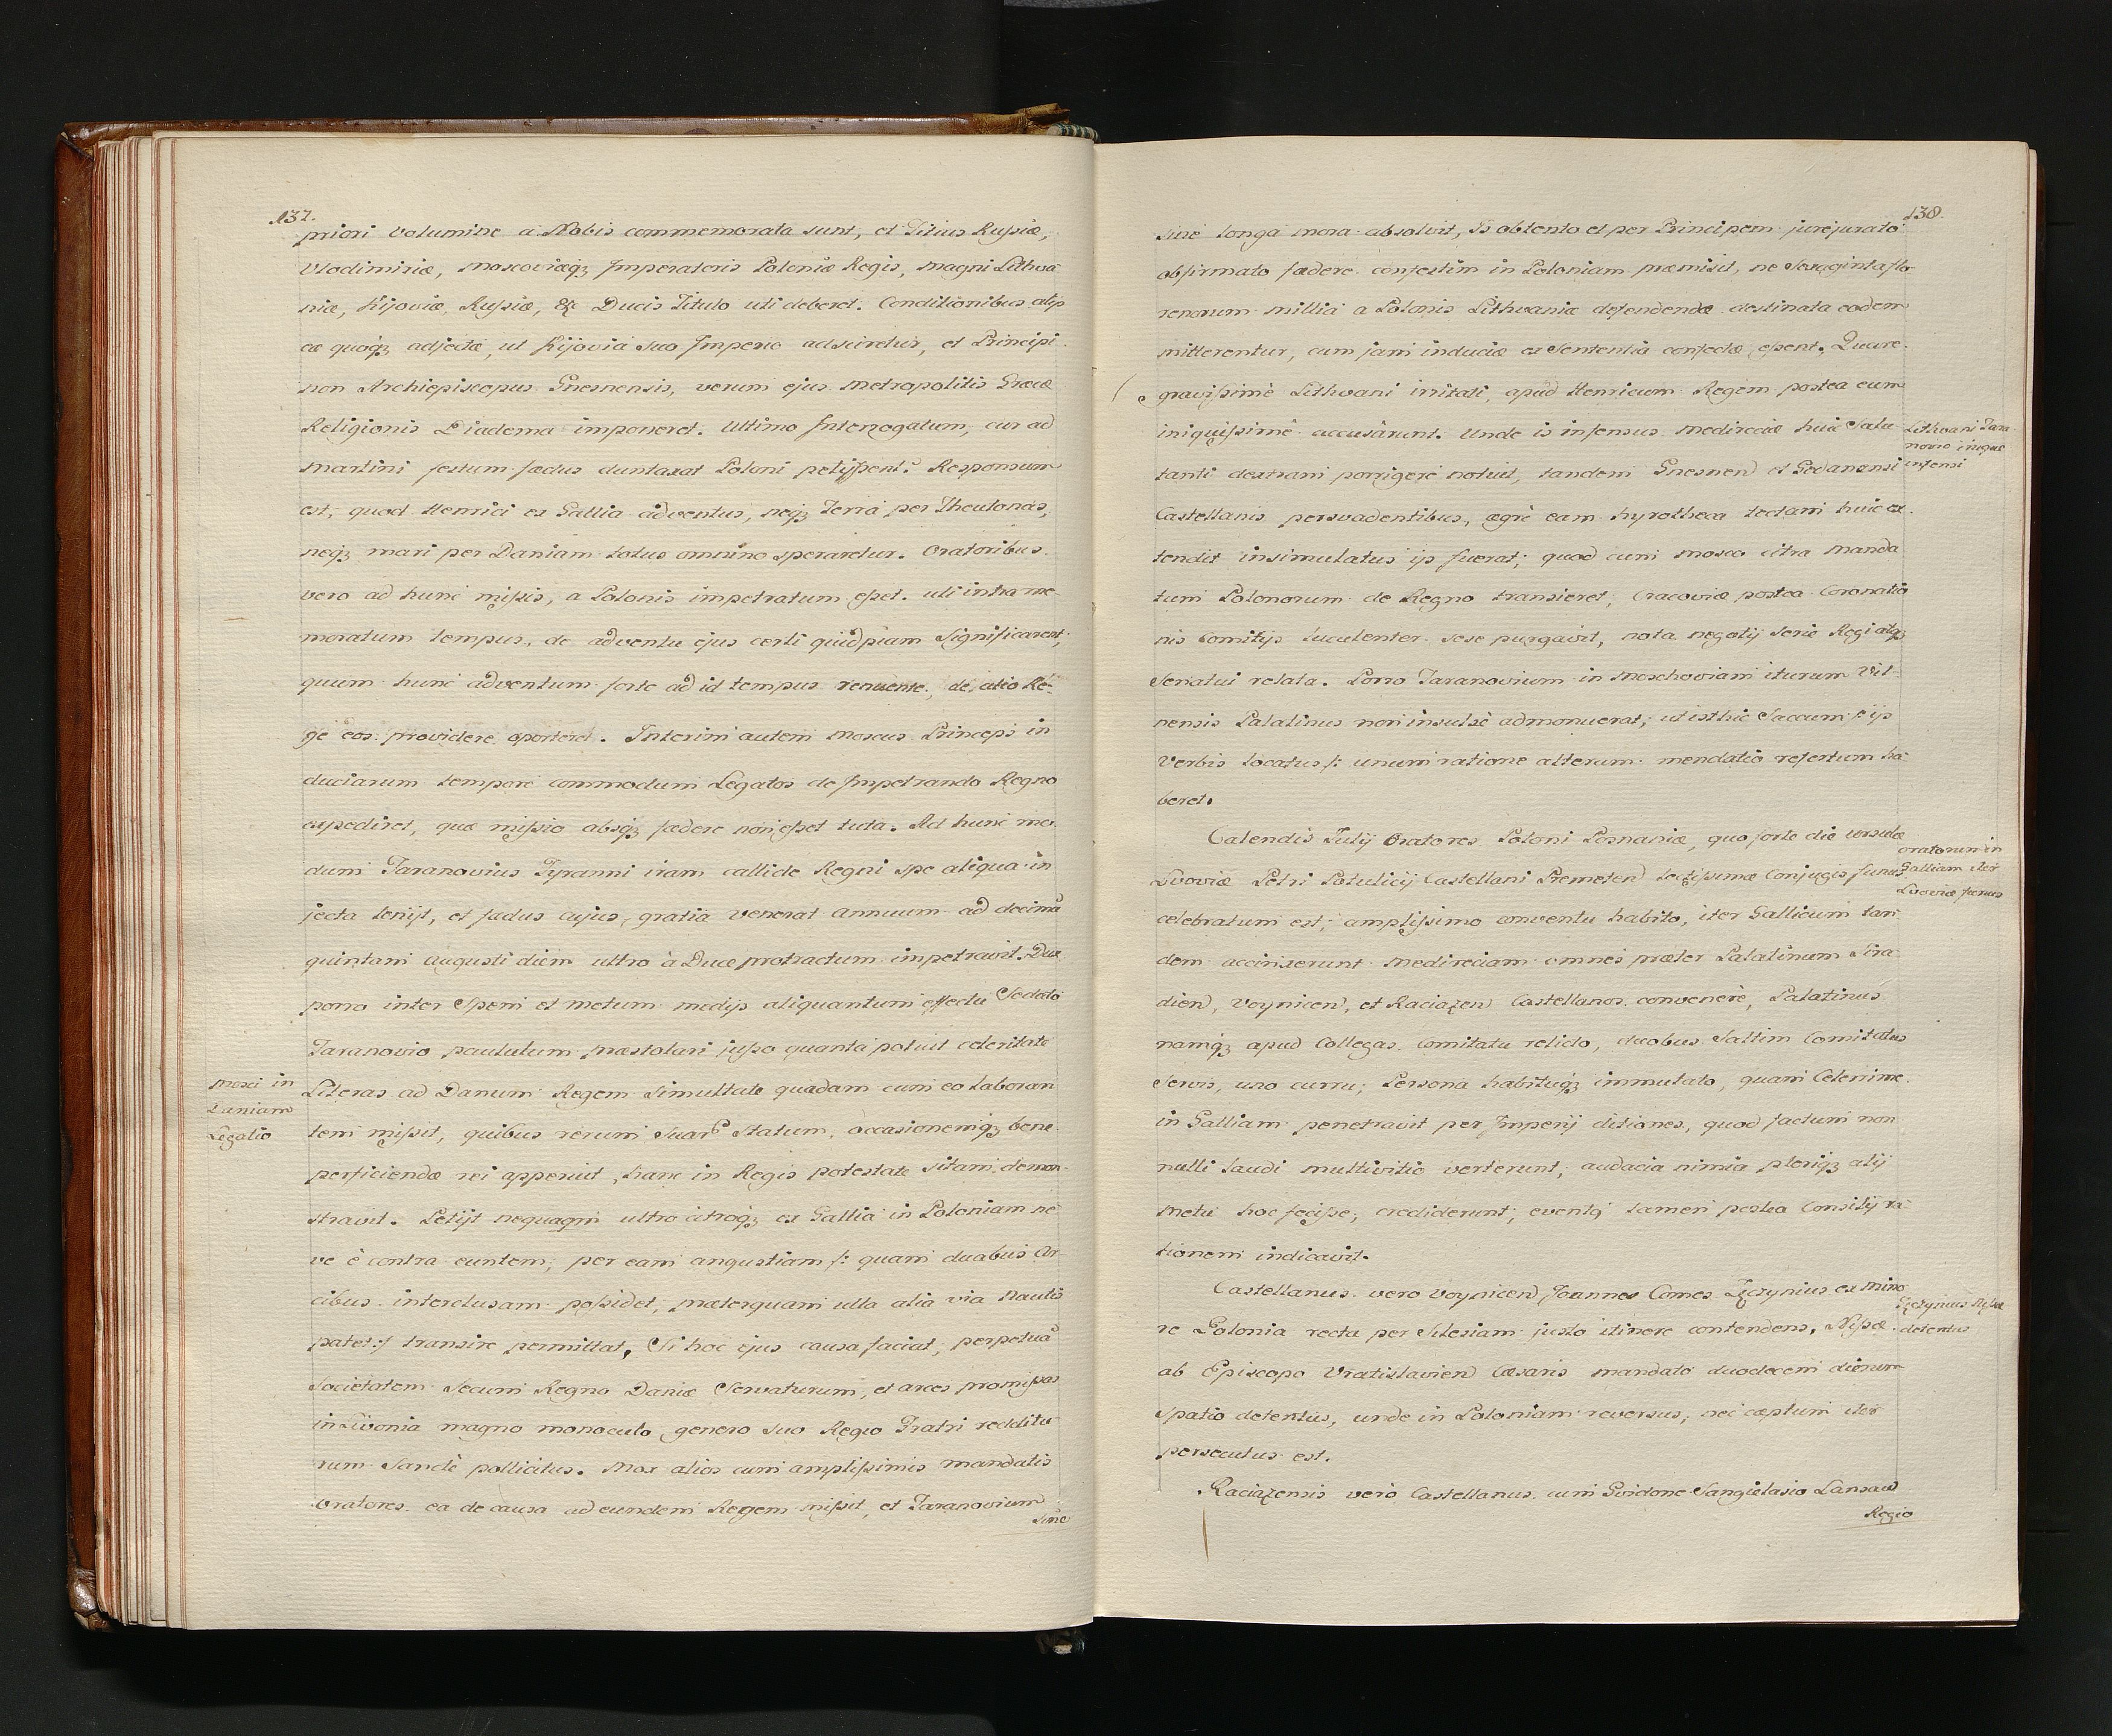 137.
priori volumine a Nobis commemorata sunt, et Titius Rußiæ,
Vlodimiriæ, Moscoviæq₃ Imperatoris Poloniæ Regis, magni Lithva
niæ, Kijoviæ, Rußiæ, &c Ducis Titulo uti deberet. Conditionibus alijs
ea quoq₃ adjecta, ut Kijovia suo Imperio adsciretur, et Principi
non Archiepiscopus Gnesnensis, verum ejus Metropolitis Græcæ
Religionis Diadema imponeret. Ultimo Interrogatum, cur ad
Martini festum fædus duntaxat Poloni petijßent? Responsum
est, quod Henrici ex Gallia adventus, neq₃ Terra per Theutonas,
neq₃ mari per Daniam totus omnino speraretur. Oratoribus
vero ad hunc mißis, a Polonis impetratum eßet. uti intra me
moratum tempus, de adventu ejus certi quidpiam Significarent;
quum hunc adventum forte ad id tempus renuente, de alio Re-
ge eos providere oporteret. Interim autem Moscus Princeps in
duciarum tempore commodum Legatos de Impetrando Regno
expediret, quæ mißio absq₃ fædere non eßet tuta. Ad hunc mo
dum Taranovius Tyranni iram callide Regni spe aliqua in
jecta lenijt, et fædus cujus gratia venerat annuum ad decimã
quintam Augusti diem ultro à Duce protractum impetravit. Dux
porro inter Spem et metum medijs aliquantum effectu Sedato
Taranovio paululum præstolari jußo quanta potuit celeritate
Mosci in
Daniam
Legatio
Literas ad Danum Regem Simultate quadam cum eo laboran
tem mißit, quibus rerum Suar Statum, occasionemq₃ bene
perficiendæ rei apperuit, hanc in Regis potestate sitam demon-
stravit. Petijt nequaqm ultro citroq₃ ex Gallia in Poloniam ne
ve è contra euntem, per eam angustiam /: quam duabus Ar-
cibus interclusam poßidet, præterquam ulla alia via Nautis
patet :/ transire permittat, Si hoc ejus causa faciat, perpetuã
Societatem Secum Regno Daniæ Servaturum, et arces promißas
in Livonia magno monoculo genero suo Regio Fratri redditu
rum Sancte pollicitus. Mox alios cum amplißimis mandatis
Oratores ea de causa ad eundem Regem mißit, et Taranovium
Sine
138.
sine longa mora absolvit, Is obtento et per Principem jurejurato
obfirmato fædere confestim in Poloniam præmisit, ne Sexaginta flo
renorum millia a Polonis Lithvaniæ defendendæ destinata eodem
mitterentur, cum jam induciæ ex Sententia confectæ eßent. Quare
gravißimè Lithvani irritati, apud Henricum Regem postea eum
iniquißimè accusarunt. Unde is infensus Medireciæ huic Salu
tanti dextram porrigere noluit, tandem Gnesnen et Gedanensi
Castellanis persvadentibus, ægrè eam hyrotheca tectam huic ex
tendit insimulatus is fuerat; quod cum Mosco citra Manda
tum Polonorum de Regno transieret, Cracoviæ postea Coronatio
nis Comitijs luculenter sese purgavit, nota negotij serie Regi atq₃
Senatui relata. Porro Taranovium in Moschoviam iturum Vil-
nensis Palatinus non insulsè admonuerat, ut isthic Saccum /: ijs
Verbis locatus /: unum ratione alterum mendatio refertum ha
beret.
Lithvani Tara
novio iniquæ
infensi
Calendis Julij Oratores Poloni Posnaniæ, quo forte die Ursulæ
Lvoviæ Petri Potulicij Castellani Premeten lectißimæ Conjugis funus
celebratum est, amplißimo conventu habito, iter Gallicum tan
dem accinxerunt Medireciam omnes præter Palatinum Sira
dien, Voynicen, et Raciazen Castellanos convenere, Palatinus
namq₃ apud Collegas Comitatu relicto, duobus Saltim Comitatus
Servis, uno curru, Persona habituq₃ immutato, quam Celerrime
in Galliam penetravit per Imperij ditiones, quod factum non
nulli laudi multi vitio verterunt, audacia nimia pleriq₃ alij
Metu hoc feciße, crediderunt, eventq tamen postea Consilij ra
tionem indicavit.
Oratorum in
Galliam iter
Lvoviæ funus
Castellanus vero Voynicen Joannes Comes Tęczynius ex Mino
re Polonia recta per Silesiam justo itinere contendens, Nißæ
ab Episcopo Vratislavien Cæsaris mandato duodecem dierum
spatio detentus, unde in Poloniam reversus, nec cæptum iter
persecutus est.
Tęczynius Nißæ
detentus
Raciazensis verò Castellanus cum Gvidone Sangielasio Lansaco
Regio